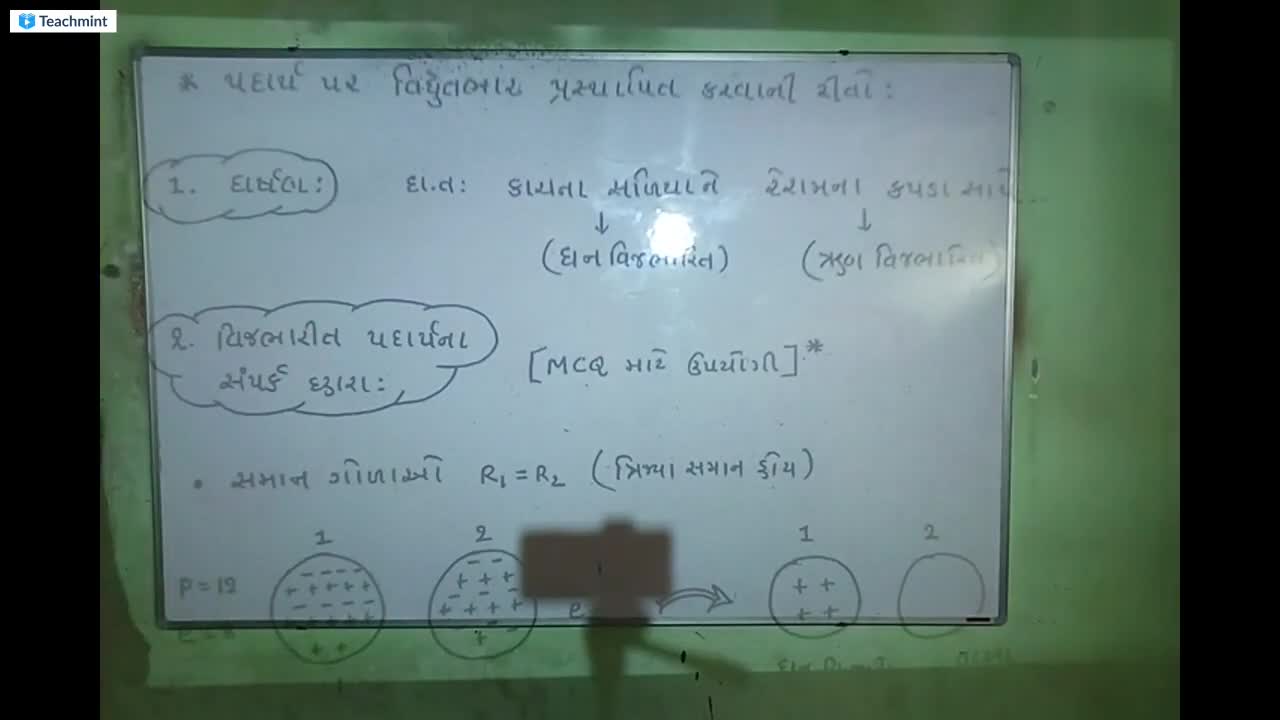 Teachmint
* પદાર્થ પર વિદ્યુતભાર પ્રસ્થાપિત કરવાની રીતો :
1. ઘર્ષણ : દા.ત : કાચના સળિયાને રેશમના કપડા સાથે
↓ ↓
(ધન વિજભારિત) (ઋણ વિજભારિત)
2. વિજભારીત પદાર્થના
સંપર્ક દ્વારા :
[MCQ માટે ઉપયોગી]*
• સમાન ગોળાઓ R₁ = R₂ (ત્રિજ્યા સમાન હોય)
1 2 1 2
P = 12